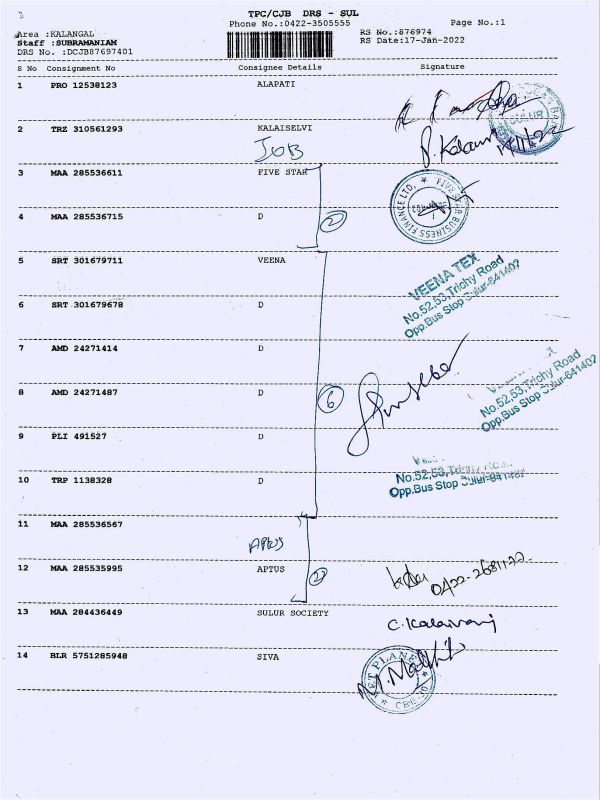 TPC/CJB DRS - SUL
Phone No.:0422-3505555
Page No.:1
Area :KALANGAL
Staff :SUBRAMANIAM
DRS No. :DCJB87697401
RS No.:876974
RS Date:17-Jan-2022
S No Consignment No Consignee Details Signature
1 PRO 12538123 ALAPATI
SULUR
2 TRZ 310561293 KALAISELVI
P. Kalai
JOB
3 MAA 285536611 FIVE STAR
FIVE STAR BUSINESS FINANCE LTD,
4 MAA 285536715 D
2
5 SRT 301679711 VEENA
VEENA TEX
No.52,53,Trichy Road
Opp.Bus Stop Sulur-641402
6 SRT 301679678 D
7 AMD 24271414 D
8 AMD 24271487 D
6
No.52,53,Trichy Road
Opp.Bus Stop Sulur-641402
9 PLI 491527 D
10 TRP 1138328 D
No.52,53,Trichy
Opp.Bus Stop Sulur-641402
11 MAA 285536567
APTUS
12 MAA 285535995 APTUS
2
13 MAA 284436449 SULUR SOCIETY
C. Kalaivani
14 BLR 5751285948 SIVA
NET PLANET